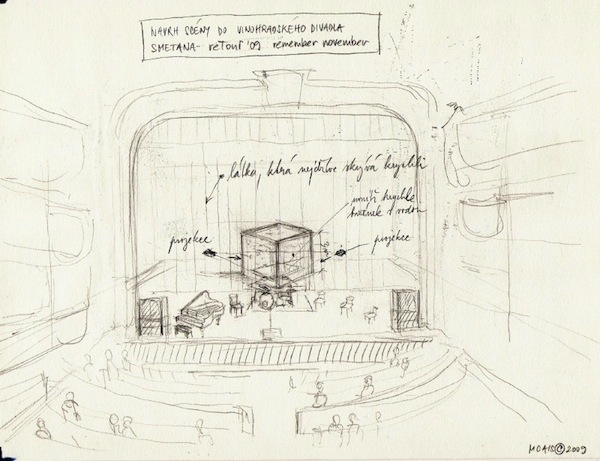 NÁVRH SCÉNY DO VINOHRADSKÉHO DIVADLA
SMETANA - reTour '09 remember november
látka, která nejdříve skývá krychli
uvnitř krychle
s vodou
projekce
projekce
MOAIS©2009